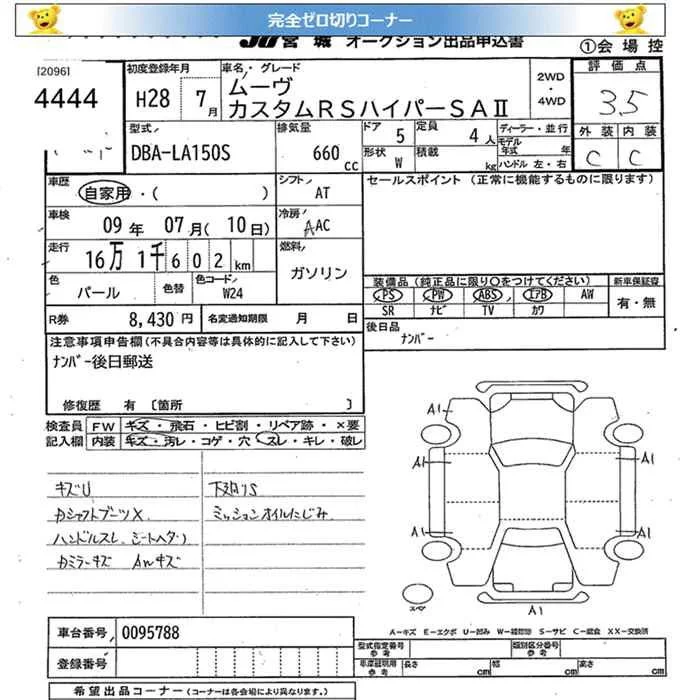 完全ゼロ切りコーナー
JU宮城 オークション出品申込書
①会場控
[2096]
4444
初度登録年月
H28 7月
車名・グレード
ムーヴ
カスタムRSハイパーSAⅡ
2WD
・
4WD
評価点
3.5
外装 内装
C C
型式
DBA-LA150S
排気量
660 cc
ドア 5
定員 4人
形状 W
積載 kg
ディーラー・並行
モデル年式 年
ハンドル 左・右
車歴
自家用・( )
シフト
AT
セールスポイント (正常に機能するものに限ります)
車検
09年 07月(10日)
冷房
AAC
走行
16万1千602km
燃料
ガソリン
色
パール
色替
色コード
W24
装備品(純正品に限り○をつけてください)
PS PW ABS エアB AW
SR ナビ TV カワ
新車保証書
有・無
R券 8,430円
名変通知期限 月 日
後日品
ナンバー
注意事項申告欄(不具合内容等は具体的に記入して下さい)
ナンバー後日郵送
修復歴 有〔箇所 〕
検査員記入欄
FW キズ・飛石・ヒビ割・リペア跡・×要
内装 キズ・汚レ・コゲ・穴・スレ・キレ・破レ
キズU
下廻りS
カシャフトブーツX
ミッションオイルにじみ
ハンドルスレ、シートヘタリ
カミラーキズ AWキズ
A1
A1
A1
A1
A1
A1
スペア
A-キズ E-エクボ U-凹み W-補修跡 S-サビ C-腐食 XX-交換済
車台番号 0095788
登録番号
型式指定番号
類別区分番号
車庫証明用参考
長さ cm
幅 cm
高さ cm
希望出品コーナー(コーナーは各会場により異なります。)